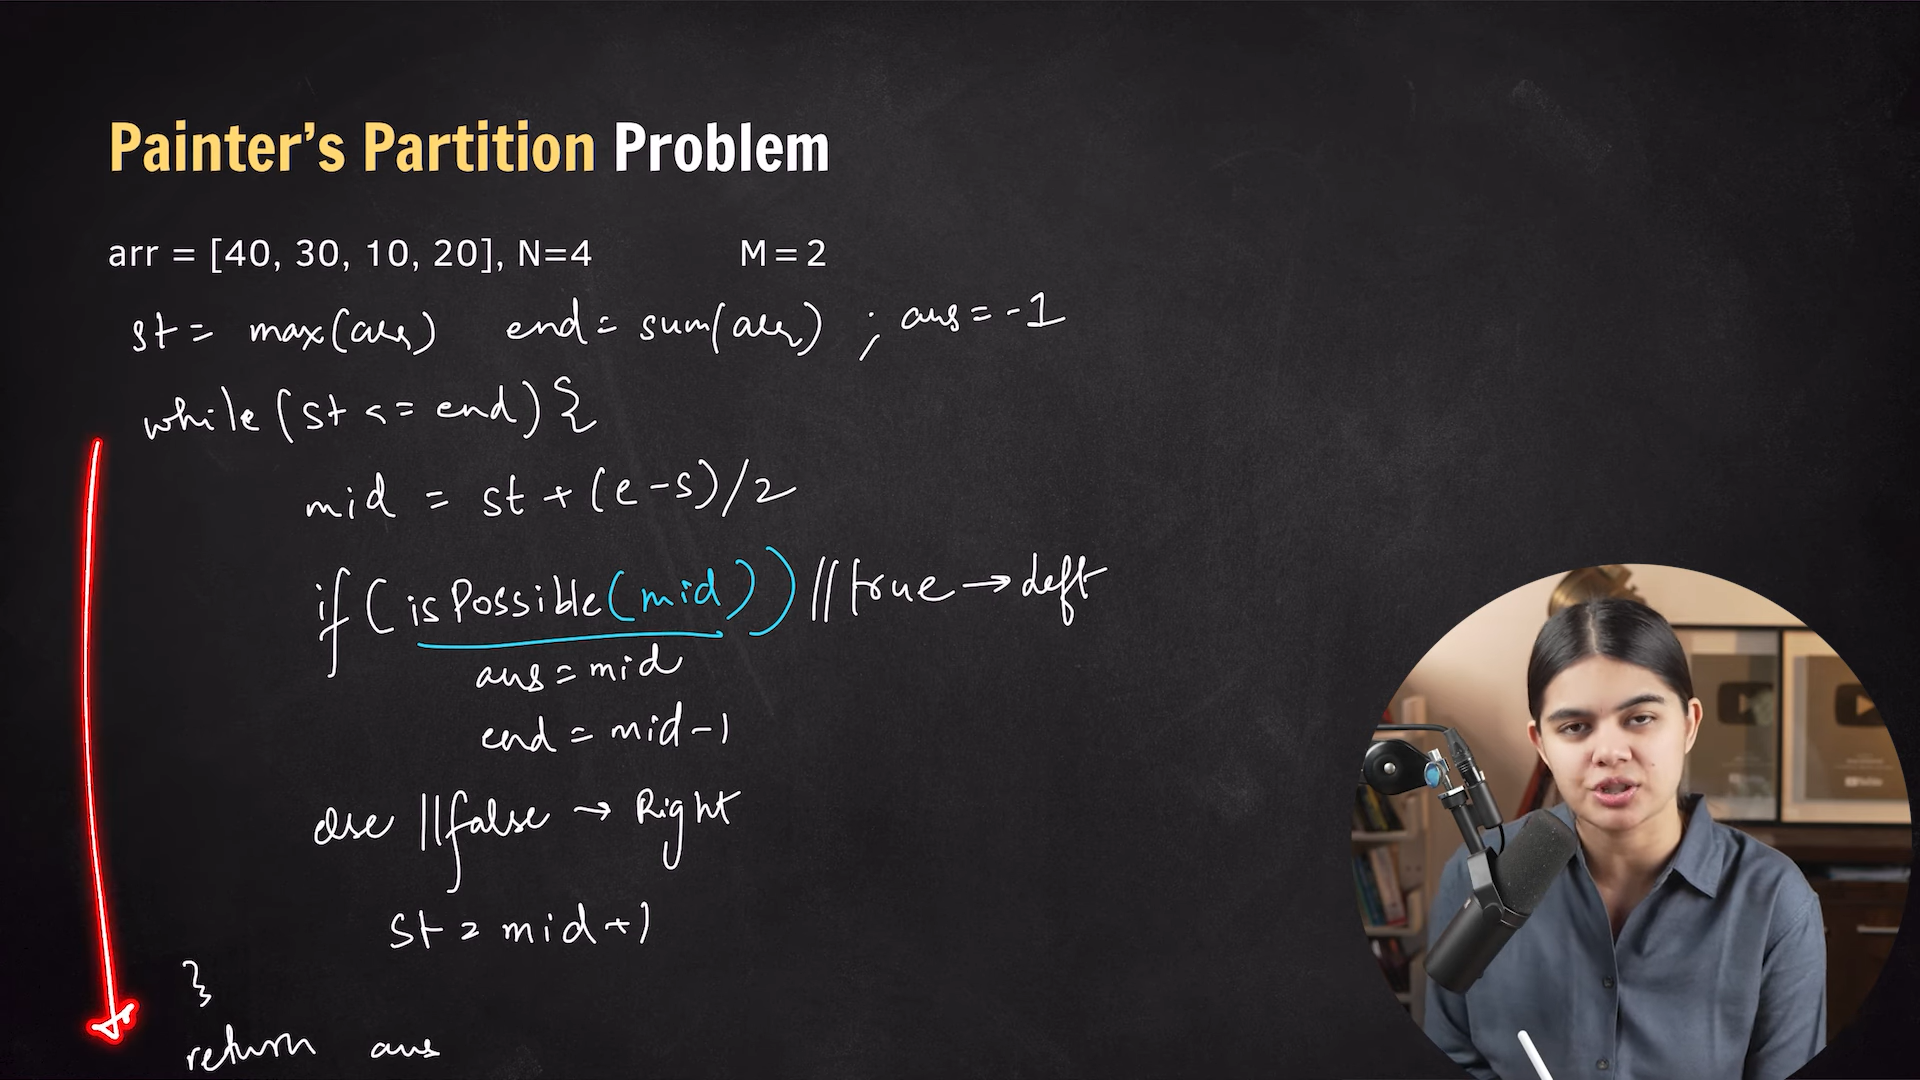 Painter's Partition Problem
arr = [40, 30, 10, 20], N=4 M = 2
st = max(arr) end = sum(arr) ; ans = -1
while (st <= end) {
mid = st + (e-s)/2
if (isPossible(mid)) // true → left
ans = mid
end = mid-1
else // false → Right
st = mid+1
}
return ans